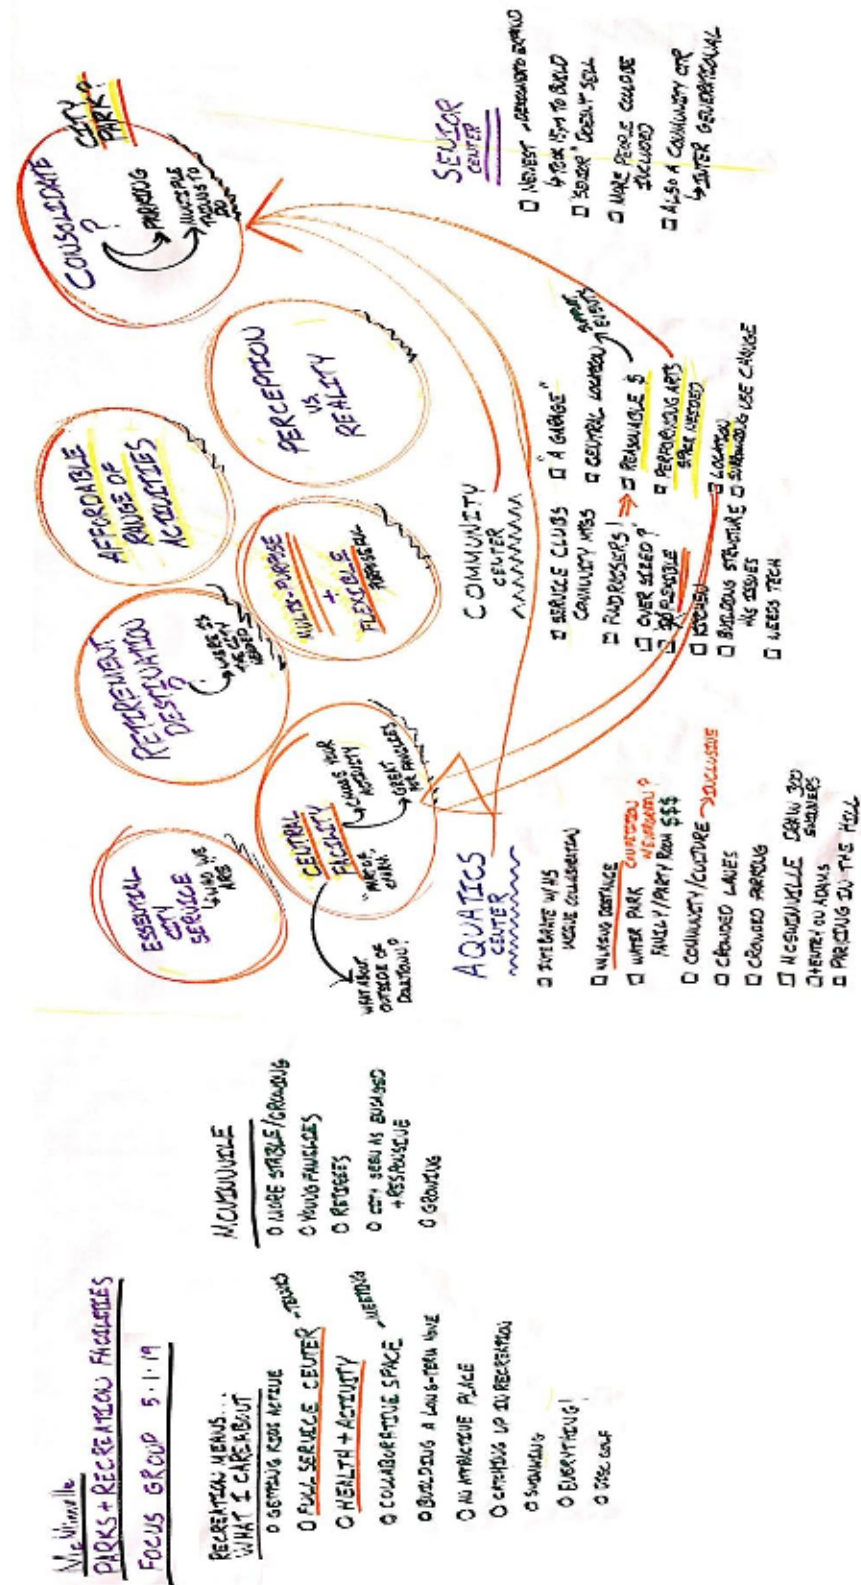 McMinnville
PARKS + RECREATION FACILITIES
FOCUS GROUP 5·1·19
RECREATION MEANS...
WHAT I CARE ABOUT
GETTING KIDS ACTIVE
FULL SERVICE CENTER - TENNIS
HEALTH + ACTIVITY
COLLABORATIVE SPACE - MEETING
BUILDING A LONG-TERM
AN ATTRACTIVE PLACE
CATCHING UP IN RECREATION
SWIMMING
EVERYTHING!
DISC GOLF
MCMINNVILLE
MORE STABLE/GROWING
YOUNG FAMILIES
RETIREES
CITY SEEN AS ENGAGED
+ RESPONSIVE
GROWING
ESSENTIAL
CITY
SERVICE
WHO WE
ARE
RETIREMENT
DESTINATION
?
WHERE IS
THE CITY
AFFORDABLE
RANGE OF
ACTIVITIES
CONSOLIDATE
?
PARKING
MULTIPLE
THINGS TO
DO
CITY
PARK?
CENTRAL
FACILITY
"PART OF
CHARM"
CHOOSE YOUR
ACTIVITY
GREAT
FOR FAMILIES
WHAT ABOUT
OUTSIDE OF
DOWNTOWN?
MULTI-PURPOSE
+
FLEXIBLE
PERCEPTION
VS.
REALITY
AQUATICS
CENTER
INTEGRATE W/HS
COLLABORATION
WALKING DISTANCE
WATER PARK COMPETITION W/ NEWBERG?
FAMILY/PARTY ROOM $$$
COMMUNITY/CULTURE → INCLUSIVE
CROWDED LANES
CROWDED PARKING
MCMINNVILLE DRAW 300
SWIMMERS
ENTRY ON ADAMS
PARKING IN THE HILL
COMMUNITY
CENTER
SERVICE CLUBS
COMMUNITY MTGS
FUNDRAISERS!
OVER SIZED?
FLEXIBLE
KITCHEN
BUILDING STRUCTURE
ISSUES
NEEDS TECH
"A GARAGE"
CENTRAL LOCATION
SUPPORT
EVENTS
REASONABLE $
PERFORMING ARTS
SPACE NEEDED
LOCATION
SURROUNDING USE CHANGE
SENIOR
CENTER
NEWEST EXPAND
TOOK 15 TO BUILD
"SENIOR" DOESN'T SELL
MORE PEOPLE COULD BE
INCLUDED
ALSO A COMMUNITY CTR
INTER GENERATIONAL